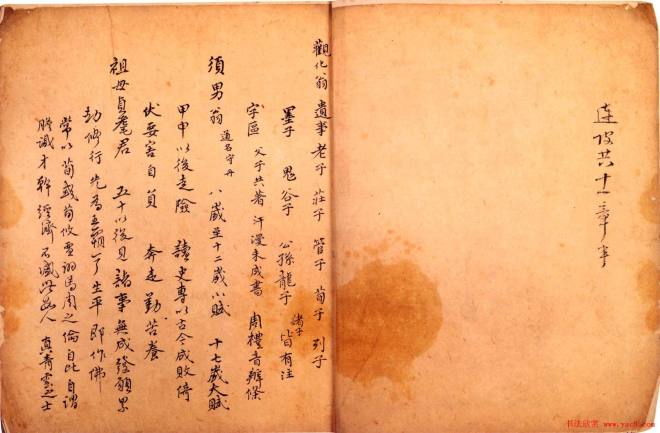 共十一章
觀化翁遺事 老子 莊子 管子 荀子 列子
墨子 鬼谷子 公孫龍子 諸子皆有注
字區 父子共著 汗漫未成書 周禮音辨條
須男翁 道名守丹 八歲至十二歲小賦 十七歲大賦
甲申以後走險 讀史專以古今成敗倚
伏要害自負 奔走勤苦養
祖母貞髦君 五十以後見諸事無成發願累
劫修行 先為五霸了生平 即作佛
常以荀彧荀攸虞翻馬周之倫自比自謂
膽識才幹 經濟不減 人 真青雲之士
书法欣赏 www.yac8.com